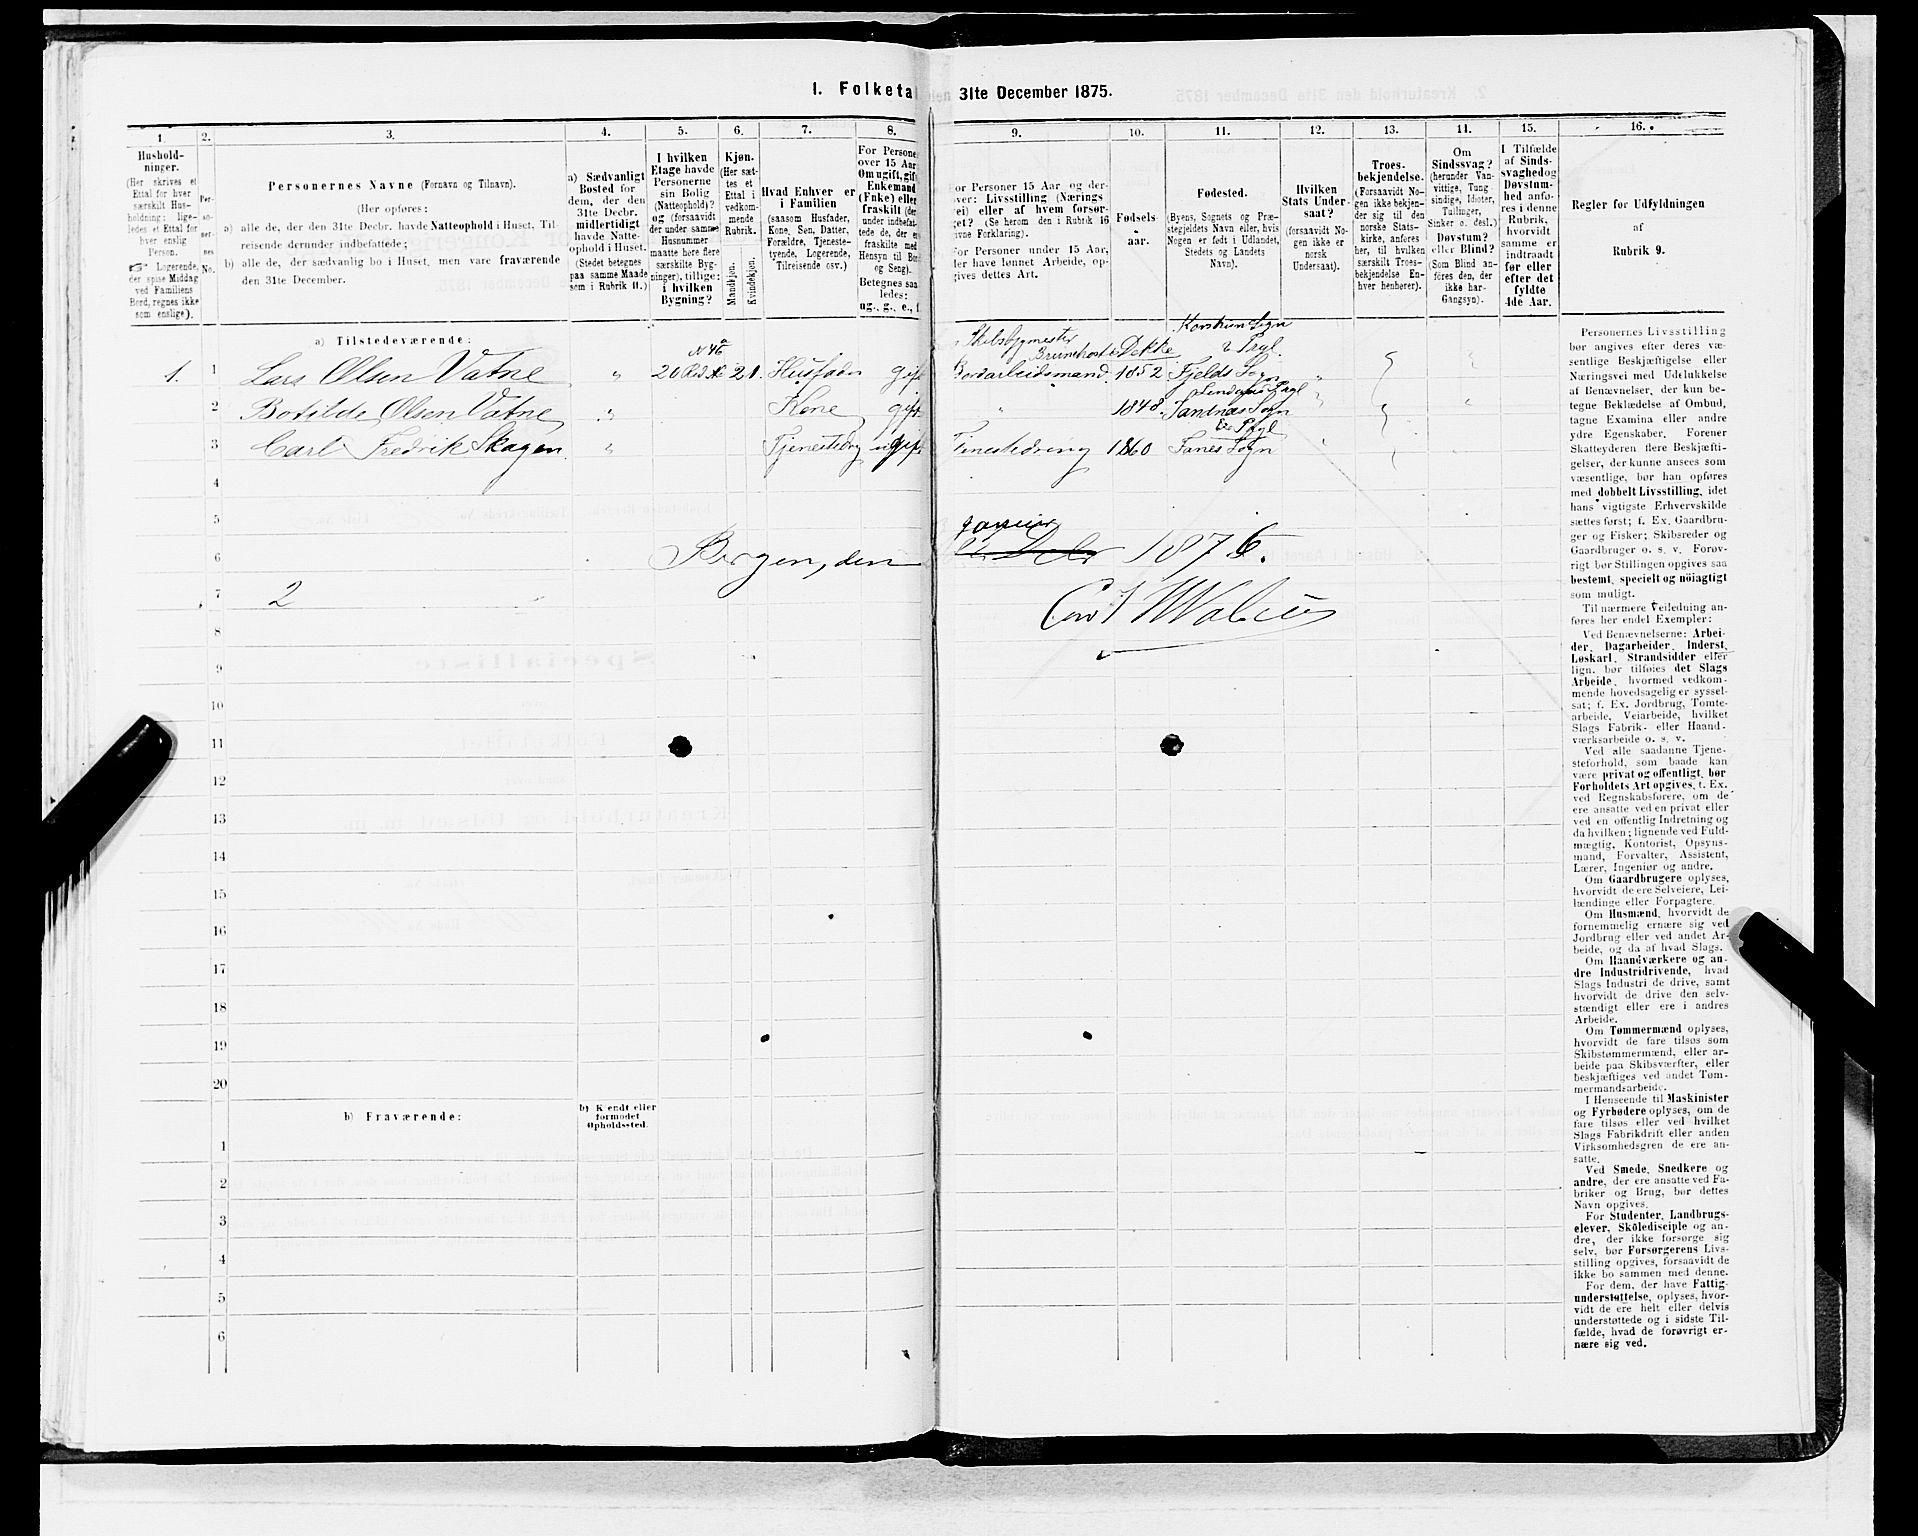 1. Folketal
31te December 1875.
1.
2.
3.
4.
5.
6.
7.
8.
9.
10.
11.
12.
13.
14.
15.
16.
Hushold-
ninger.
(Her skrives et
Ettal for hver
særskilt Hus-
holdning; lige-
ledes et Ettal for
hver enslig
Person.
☞ Logerende,
der spise Middag
ved Familiens
Bord, regnes ikke
som enslige).
Per-
so-
ner-
nes
No.
Personernes Navne (Fornavn og Tilnavn).
(Her opføres:
a) alle de, der den 31te Decbr. havde Natteophold i Huset, Til-
reisende derunder indbefattede;
b) alle de, der sædvanlig bo i Huset, men vare fraværende
den 31te December.
a) Sædvanligt
Bosted for
dem, der den
31te Decbr.
midlertidigt
havde Natte-
ophold i Huset.
(Stedet betegnes
paa samme Maade
som i Rubrik 11.)
I hvilken
Etage havde
Personerne
sin Bolig
(Natteophold)?
og (forsaavidt
der under samme
Husnummer
maatte høre flere
særskilte Byg-
ninger), tillige:
i hvilken
Bygning?
Kjøn.
(Her sæt-
tes et
Ettal i
vedkom-
mende
Rubrik.
Mandkjøn.
Kvindekjøn.
Hvad Enhver er
i Familien
(saasom Husfader,
Kone, Søn, Datter,
Forældre, Tjeneste-
tyende, Logerende,
Tilreisende osv.)
For Persone
over 15 Aar
Om ugift, gift
Enkemand
(Enke) eller
fraskilt (der
under indbefat-
tede de, der er
fraskilte med
Hensyn til Bor
og Seng).
Betegnes saa
ledes:
ug., g., e., f.
or Personer 15 Aar og der-
over: Livsstilling (Nærings
ei) eller af hvem forsør-
get? (Se herom den i Rubrik 16
givne Forklaring).
For Personer under 15 Aar,
der have lønnet Arbeide, op-
gives dettes Art.
Fødsels-
aar.
Fødested.
(Byens, Sognets og Præ-
stegjeldets Navn eller, hvis
Nogen er født i Udlandet,
Stedets og Landets
Navn).
Hvilken
Stats Under-
saat?
(forsaavidt No-
gen ikke er
norsk
Undersaat).
Troes-
bekjendelse.
(Forsaavidt No-
gen ikke bekjen-
der sig til den
norske Stats-
kirke, anføres
her, til hvilken
særskilt Troes-
bekjendelse En-
hver henhører).
Om
Sindssvag?
(herunder Van-
vittige, Tung-
sindige, Idioter,
Tullinger,
Sinker o. desl.).
Døvstum?
eller Blind?
(Som Blind an-
føres den, der
ikke har
Gangsyn).
I Tilfælde
af Sinds-
svaghed og
Døvstum-
hed anfø-
res i denne
Rubrik,
hvorvidt
samme er
indtraadt
før eller
efter det
fyldte
4de Aar.
Regler for Udfyldningen
af
Rubrik 9.
a) Tilstedeværende:
1. 1 Lars Olsen Vatne " Husfader gift 1852 Fjelds Sogn
2 Botilde Olsen Vatne " Kone gift " 1848 Sandnæs Sogn
3 Carl Fredrik Skagen " ugift 1860 Fanes Sogn
4
5
6 Bergen, den 1876.
7 2
8
9
10
11
12
13
14
15
16
17
18
19
20
b) Fraværende:
b) Kjendt eller
formodet
Opholdssted.
1
2
3
4
5
6
Personernes Livsstilling
bør angives efter deres væ-
sentlige Beskjæftigelse eller
Næringsvei med Udelukkelse
af Benævnelser, der kun be-
tegne Beklædelse af Ombud,
tagne Examina eller andre
ydre Egenskaber. Forener
Skatteyderen flere Beskjæfti-
gelser, der kunne ansees som
væsentlige, bør han opføres
med dobbelt Livsstilling, idet
hans vigtigste Erhvervskilde
sættes først; f. Ex. Gaardbru-
ger og Fisker; Skibsreder og
Gaardbruger o. s. v. Forøv-
rigt bør Stillingen opgives saa
bestemt, specielt og nøiagtigt
som muligt.
Til nærmere Veiledning an-
føres her endel Exempler:
Ved Benævnelserne: Arbei-
der, Dagarbeider, Inderst,
Løskarl, Strandsidder eller
lign. bør tilføies det Slags
Arbeide, hvormed vedkom-
mende hovedsagelig er syssel-
sat; f. Ex. Jordbrug, Tomte-
arbeide, Veiarbeide, hvilket
Slags Fabrik- eller Haand-
værksarbeide o. s. v.
Ved alle saadanne Tjene-
steforhold, som baade kan
være privat og offentligt, bør
Forholdets Art opgives, f. Ex.
ved Regnskabsførere, om de
ere ansatte ved en privat eller
ved en offentlig Indretning og
da hvilken; lignende ved Fuld-
mægtig, Kontorist, Opsyns-
mand, Forvalter, Assistent,
Lærer, Ingeniør og andre.
Om Gaardbrugere oplyses,
hvorvidt de ere Selveiere, Lei-
lændinge eller Forpagtere.
Om Husmænd, hvorvidt de
fornemmelig ernære sig ved
Jordbrug eller ved andet Ar-
beide, og da af hvad Slags.
Om Haandværkere og an-
dre Industridrivende, hvad
Slags Industri de drive, samt
hvorvidt de drive den selv-
stændigt eller ere i andres
Arbeide.
Om Tømmermænd oplyses,
hvorvidt de fare tilsøs som
Skibstømmermænd, eller ar-
beide paa Skibsværfter, eller
beskjæftiges ved andet Tøm-
mermandsarbeide.
I Henseende til Maskinister
og Fyrbødere oplyses, om de
fare tilsøs eller ved hvilket
Slags Fabrikdrift eller anden
Virksomhedsgren de ere an-
satte.
Ved Smede, Snedkere og
andre, der ere ansatte ved Fa-
briker og Brug, bør dettes
Navn opgives.
For Studenter, Landbrugs-
elever, Skoledisciple og an-
dre, der ikke forsørge sig
selv, bør Forsørgerens Livs-
stilling opgives, forsaavidt de
ikke bo sammen med denne.
For dem, der have Fattig-
understøttelse, oplyses, hvor-
vidt de ere helt eller delvis
understøttede og i sidste Til-
fælde, hvad de forøvrigt er-
nære sig ved.